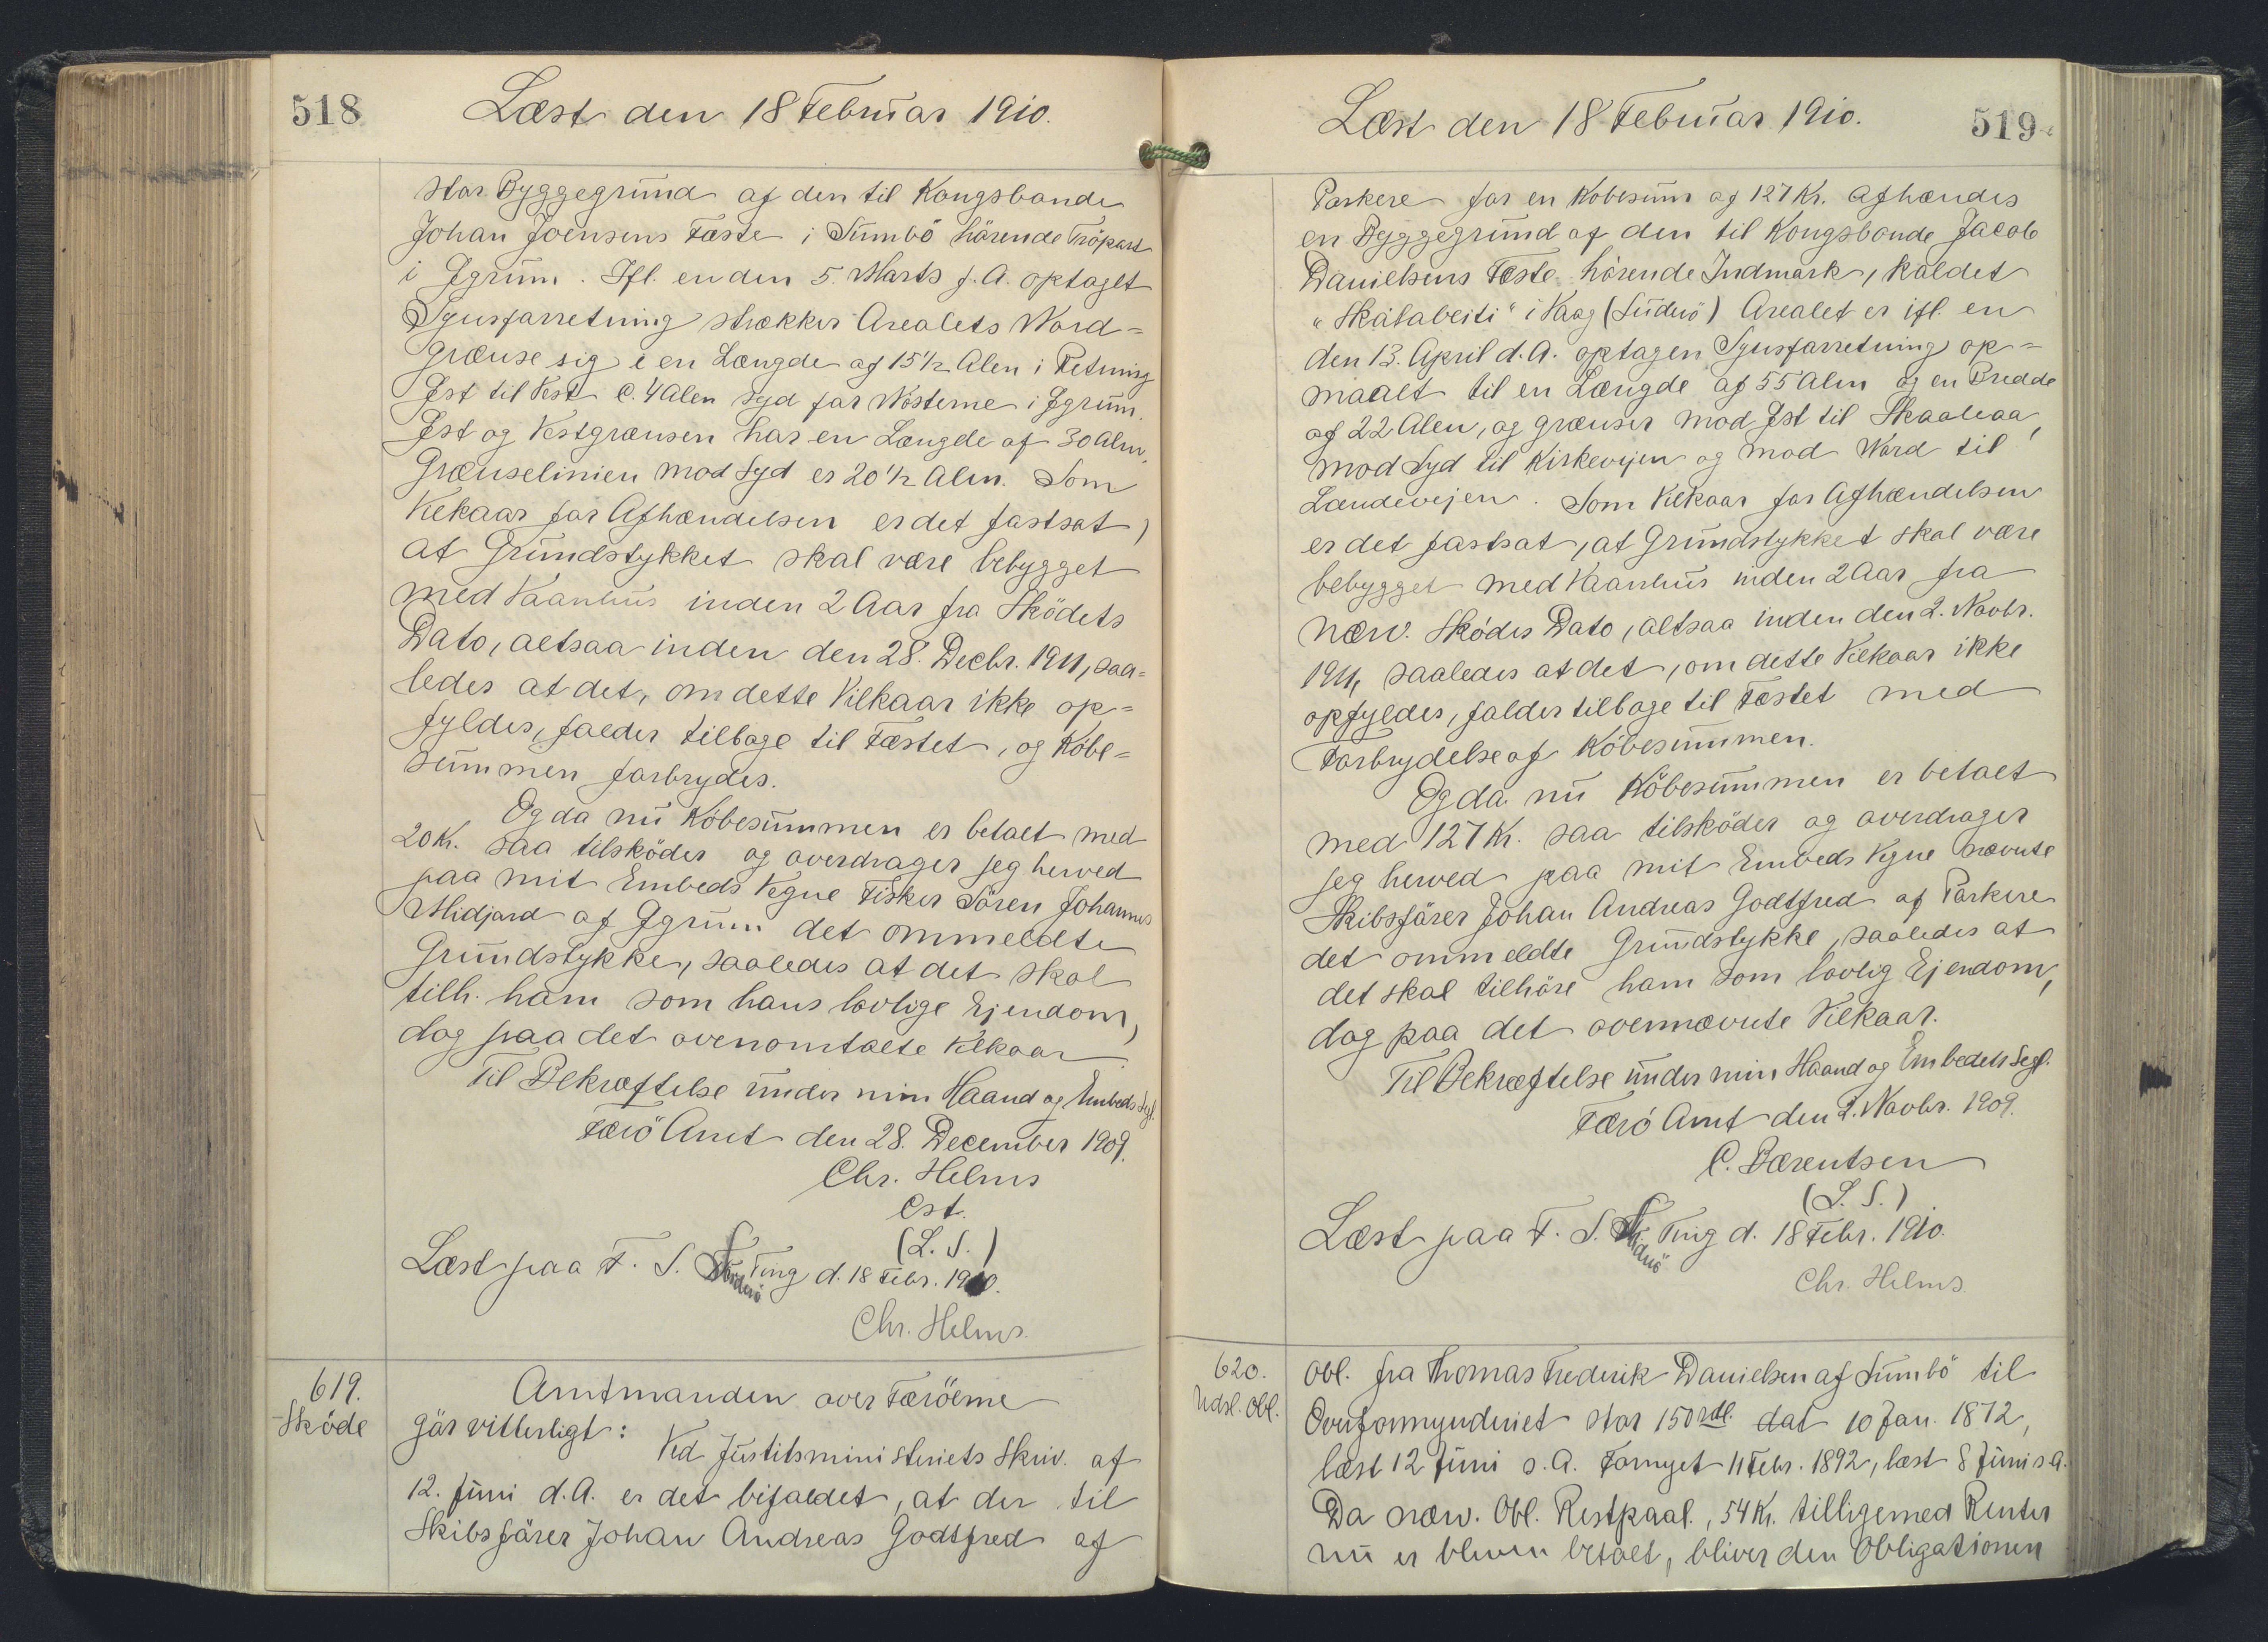 518
Læst den 18 Februar 1910.
stor Byggegrund af den til Kongsbonde
Johan Joensens Fæste i Sumbö hörende Tröpart
i Ögrum. Ifl. en den 5. Marts f. A. optaget
Synsforretning strækker Arealets Nord-
grænse sig i en Længde af 15½ Alen i Retning
Øst til Vest c. 4 Alen Syd for Nösterne i Ögrum.
Øst og Vestgrænsen har en Længde af 30 Alen,
Grænselinien mod Syd er 20½ Alen. Som
Vilkaar for Afhændelsen er det fastsat,
at Grundstykket skal være bebygget
med Vaanhus inden 2 Aar fra Sködets
Dato, altsaa inden den 28. Decbr. 1911, saa-
ledes at det, om dette Vilkaar ikke op-
fyldes, falder tilbage til Fæstet, og Köbe-
summen forbrydes.
Og da nu Köbesummen er betalt med
20 Kr. saa tilsköder og overdrager jeg herved
paa mit Embeds Vegne Fisker Sören Johannes
Midjord af Ögrum det ommeldte
Grundstykke, saaledes at det skal
tilh. ham som hans lovlige Ejendom,
dog paa det ovenomtalte Vilkaar.
Til Bekræftelse under min Haand og Embeds Segl.
Færö Amt den 28. December 1909.
Chr. Helms
Cst.
(L. S.)
Læst paa F. S. Suderö Ting d. 18 Febr. 1910.
Chr. Helms.
619.
Sköde
Amtmanden over Færöerne
gör vitterligt:
Ved Justitsministeriets Skriv. af
12. Juni d.A. er det bifaldet, at der til
Skibsförer Johan Andreas Godtfred af
Læst den 18 Februar 1910.
519
Porkere for en Kobesum af 127 Kr. afhændes
en Byggegrund af den til Kongsbonde Jacob
Danielsens Fæste hörende Indmark, kaldet
"Skálabeiti" i Vaag (Suderö) Arealet er ifl. en
den 13. April d.A. optagen Synsforretning op-
maalt til en Længde af 55 Alen og en Bredde
af 22 Alen, og grænser mod Øst til Skaaleaa,
mod Syd til Kirkevejen og mod Nord til
Landevejen. Som Vilkaar for Afhændelsen
er det fastsat, at Grundstykket skal være
bebygget med Vaanhus inden 2 Aar fra
nærv. Sködes Dato, altsaa inden den 2. Novbr.
1911, saaledes at det, om dette Vilkaar ikke
opfyldes, falder tilbage til Fæstet med
Forbrydelse af Köbesummen.
Og da nu Köbesummen er betalt
med 127 Kr. saa tilsköder og overdrager
jeg herved paa mit Embeds Vegne nævnte
Skibsförer Johan Andreas Godtfred af Porkere
det ommeldte Grundstykke, saaledes at
det skal tilhöre ham som lovlig Ejendom,
dog paa det ovennævnte Vilkaar.
Til Bekræftelse under min Haand og Embedets Segl.
Færö Amt den 2. Novbr. 1909.
C. Bærentsen
(L. S.)
Læst paa F. S. Suderö Ting d. 18 Febr. 1910.
Chr. Helms
620.
Udsl. Obl.
Obl. fra Thomas Frederik Danielsen af Sumbö til
Overformynderiet stor 150 rdl. dat 10 Jan. 1872,
læst 12 Juni s. A. Fornyet 11 Febr. 1892, læst 8 Juni s A.
Da nærv. Obl. Restpaal., 54 Kr. tilligemed Renter
nu er bleven betalt, bliver den Obligationen